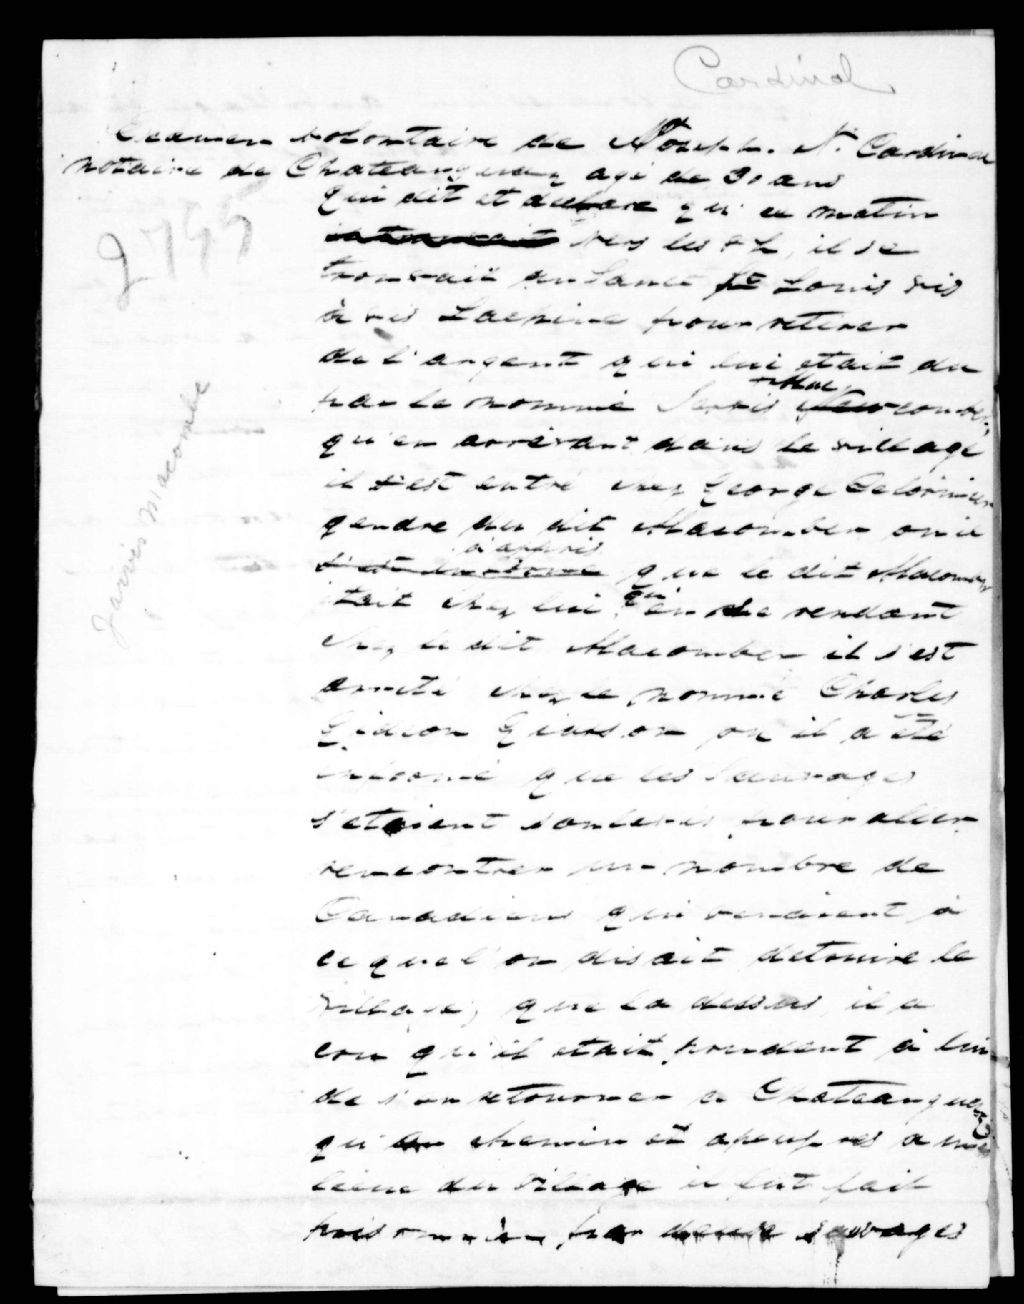 Cardinal
Examen volontaire de Joseph N. Cardinal
notaire de Chateauguay agé de 30 ans
qui dit et declare qu'ce matin
vers les 7 h, il se
trouvait au Sault St Louis vis
à vis Lachine pour retirer
de l'argent qui lui etait du
par le nommé Jervis Macomber,
qu'en arrivant dans le village
il s'est entré chez George Delorimier
gendre du dit Macomber ou il
a appris que le dit Macomber
etait chez lui, qu'en se rendant
chez le dit Macomber il s'est
arreté chez le nommé Charles
Gideon Giasson ou il a été
informé que les Sauvages
s'etaient soulevés pour aller
rencontrer un nombre de
Canadiens qui venaient à
ce que l'on disait detruire le
village; que la dessus il a
cru qu'il etait prudent à lui
de s'en retourner a Chateauguay
qu'en chemin et a peu près a une
lieue du village il fut fait
prisonnier par deux sauvages
2755
Jarvis Macombe